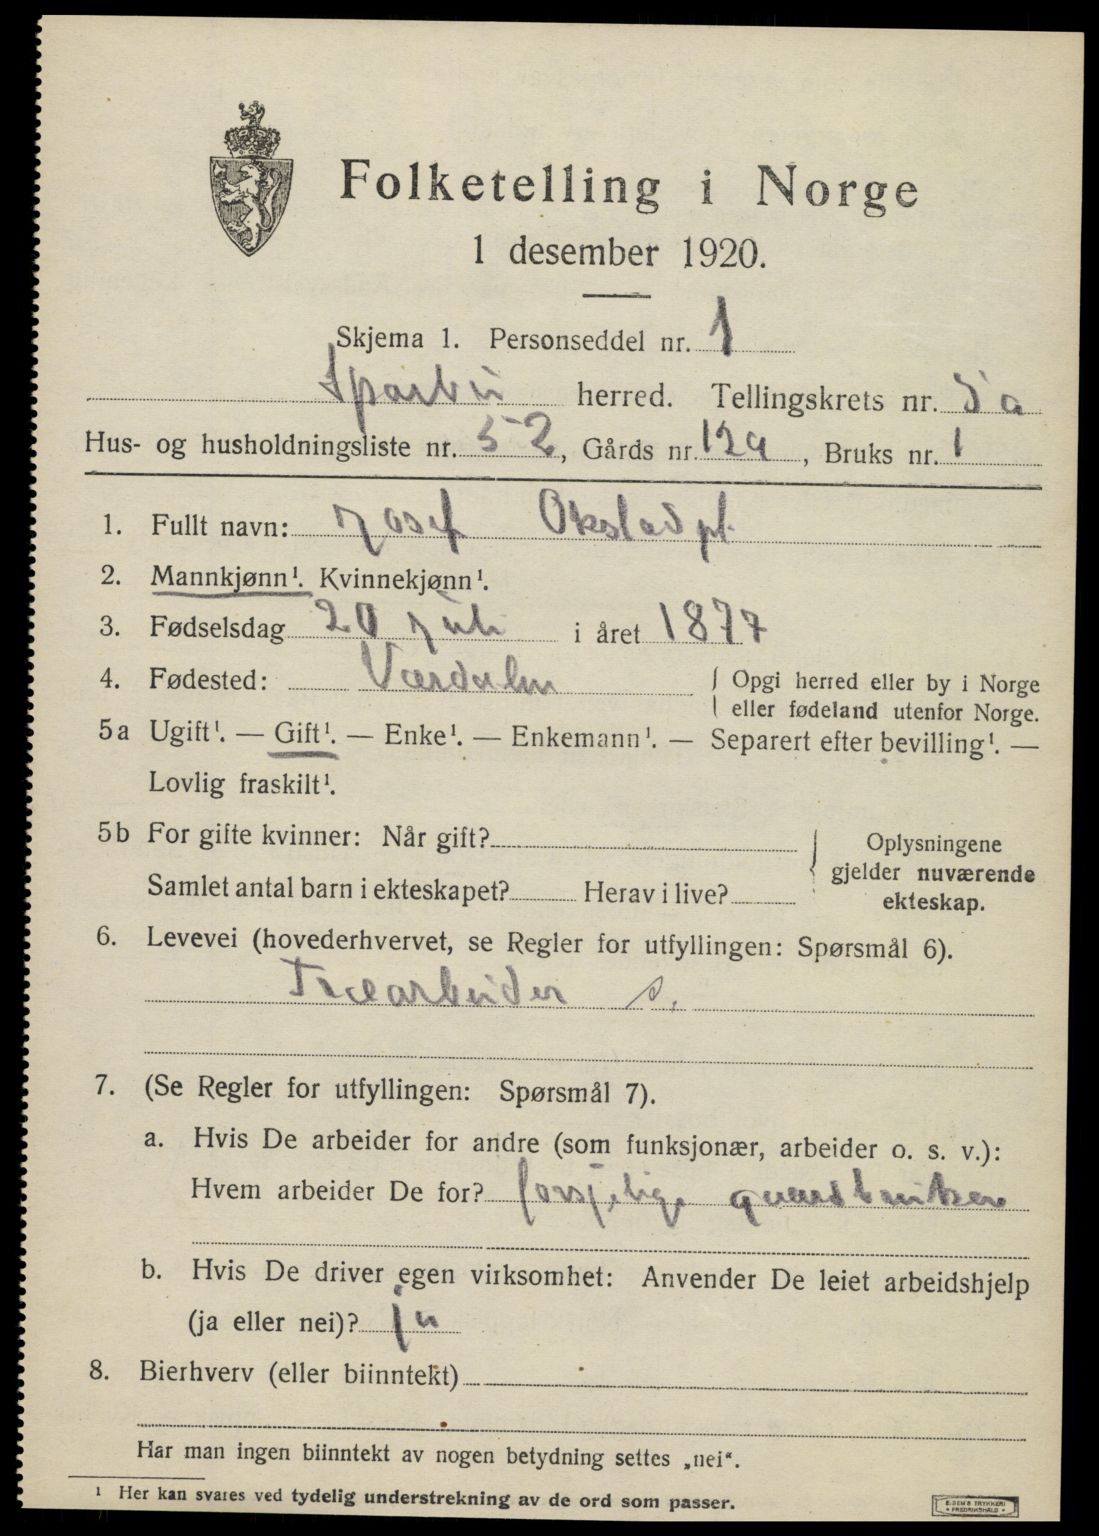 Folketelling i Norge
1 desember 1920.
Skjema 1. Personseddel nr. 1
Sparbu herred. Tellingskrets nr. 5a
Hus- og husholdningsliste nr. 52, Gårds nr. 129, Bruks nr. 1
1. Fullt navn: Josef Okstadpl.
2. Mannkjønn¹. Kvinnekjønn¹.
3. Fødselsdag 20 juli i året 1877
4. Fødested: Værdalen { Opgi herred eller by i Norge
eller fødeland utenfor Norge.
5a Ugift¹. — Gift¹. — Enke¹. — Enkemann¹. — Separert efter bevilling¹. —
Lovlig fraskilt¹.
5b For gifte kvinner: Når gift? } Oplysningene
gjelder nuværende
Samlet antal barn i ekteskapet? Herav i live?
ekteskap.
6. Levevei (hovederhvervet, se Regler for utfyllingen: Spørsmål 6).
Træarbeider s.
7. (Se Regler for utfyllingen: Spørsmål 7).
a. Hvis De arbeider for andre (som funksjonær, arbeider o. s. v.):
Hvem arbeider De for? forsjelige
b. Hvis De driver egen virksomhet: Anvender De leiet arbeidshjelp
(ja eller nei)? ja
8. Bierhverv (eller biinntekt)
Har man ingen biinntekt av nogen betydning settes „nei“.
¹ Her kan svares ved tydelig understrekning av de ord som passer.
E. SEM'S TRYKKERI
FREDRIKSHALD